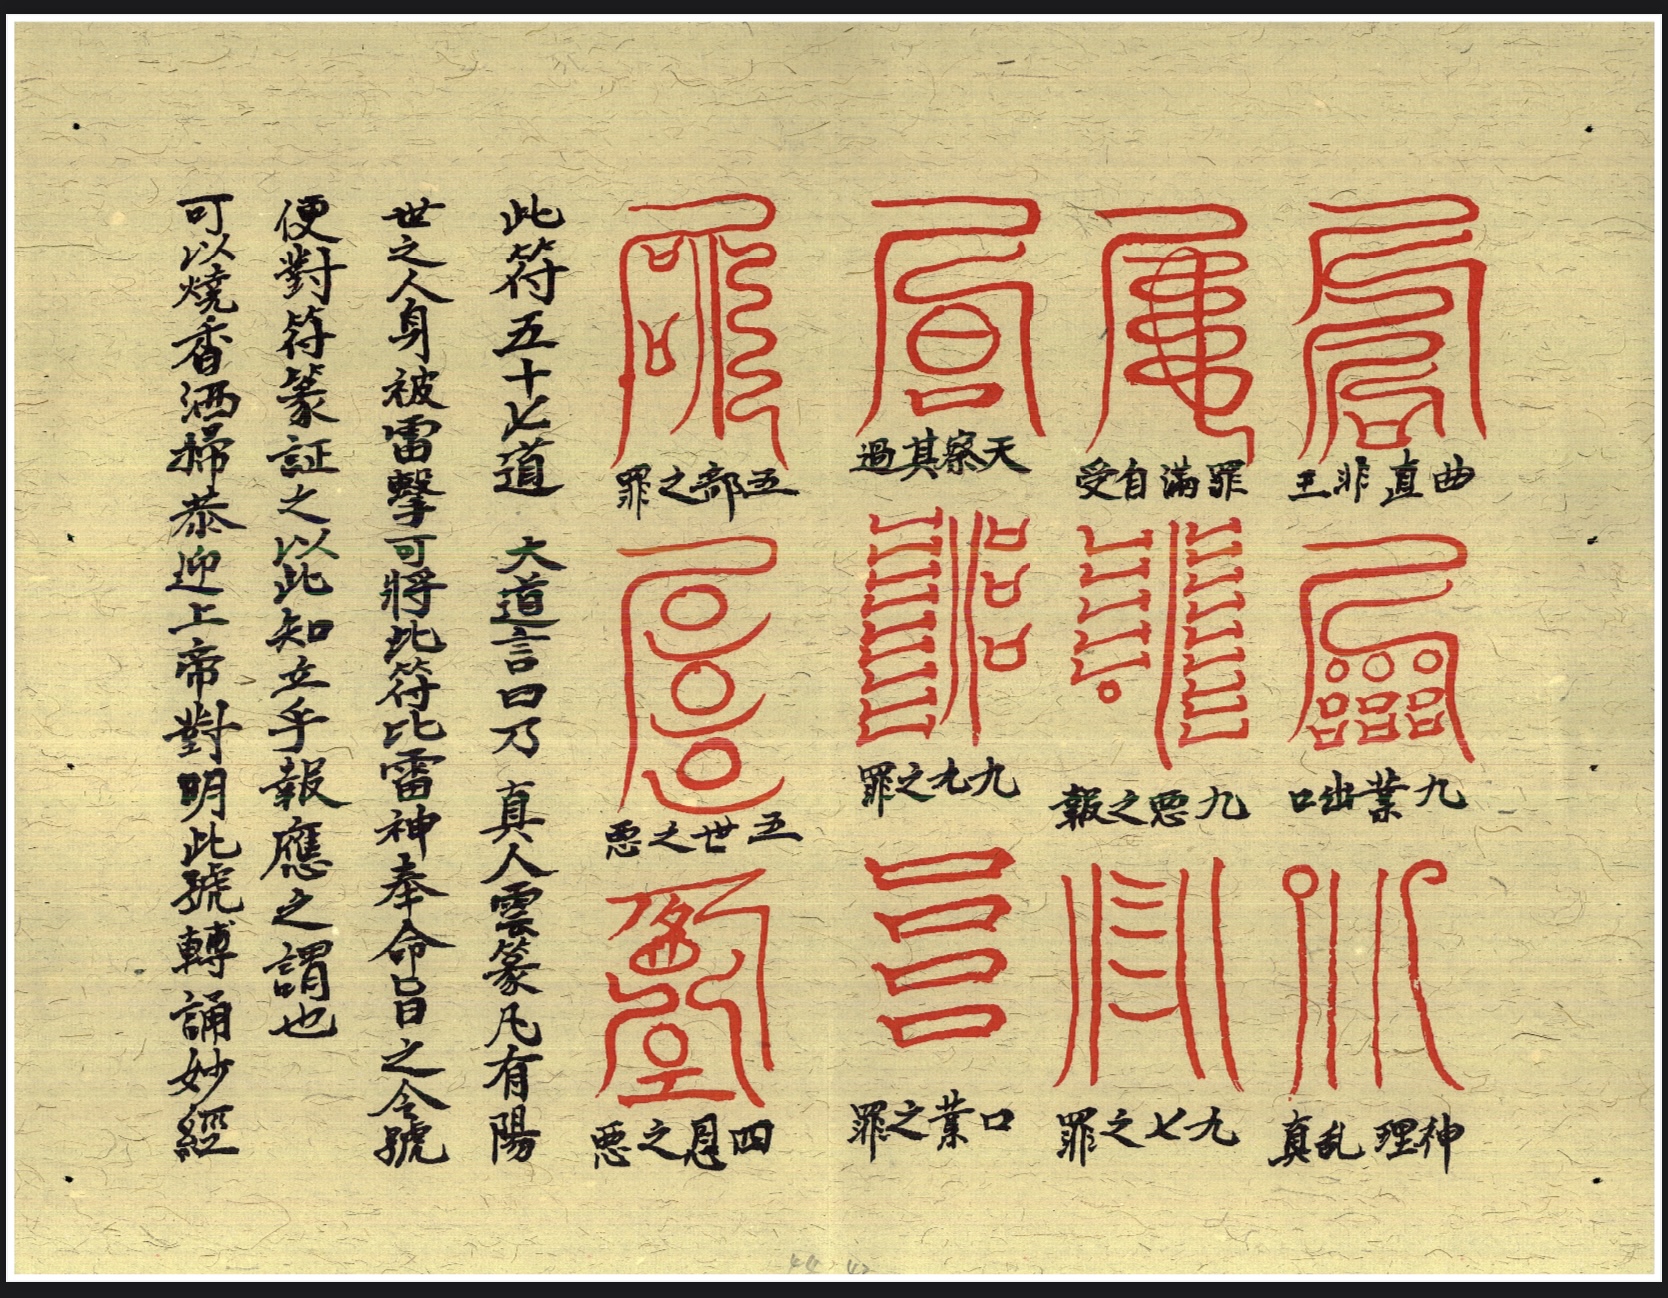 曲直非王
九業出口
神理乱真
罪滿自受
九悪之報
九七之罪
天察其過
九九之罪
口業之罪
五部之罪
五世之悪
四恩之悪
此符五十七道 大道言曰乃 真人雲篆凡有陽
世之人身被雷擊可將此符比雷神奉命旨之令號
便對符篆証之以此知立乎報應之謂也
可以燒香洒掃恭迎上帝對明此號轉誦妙經